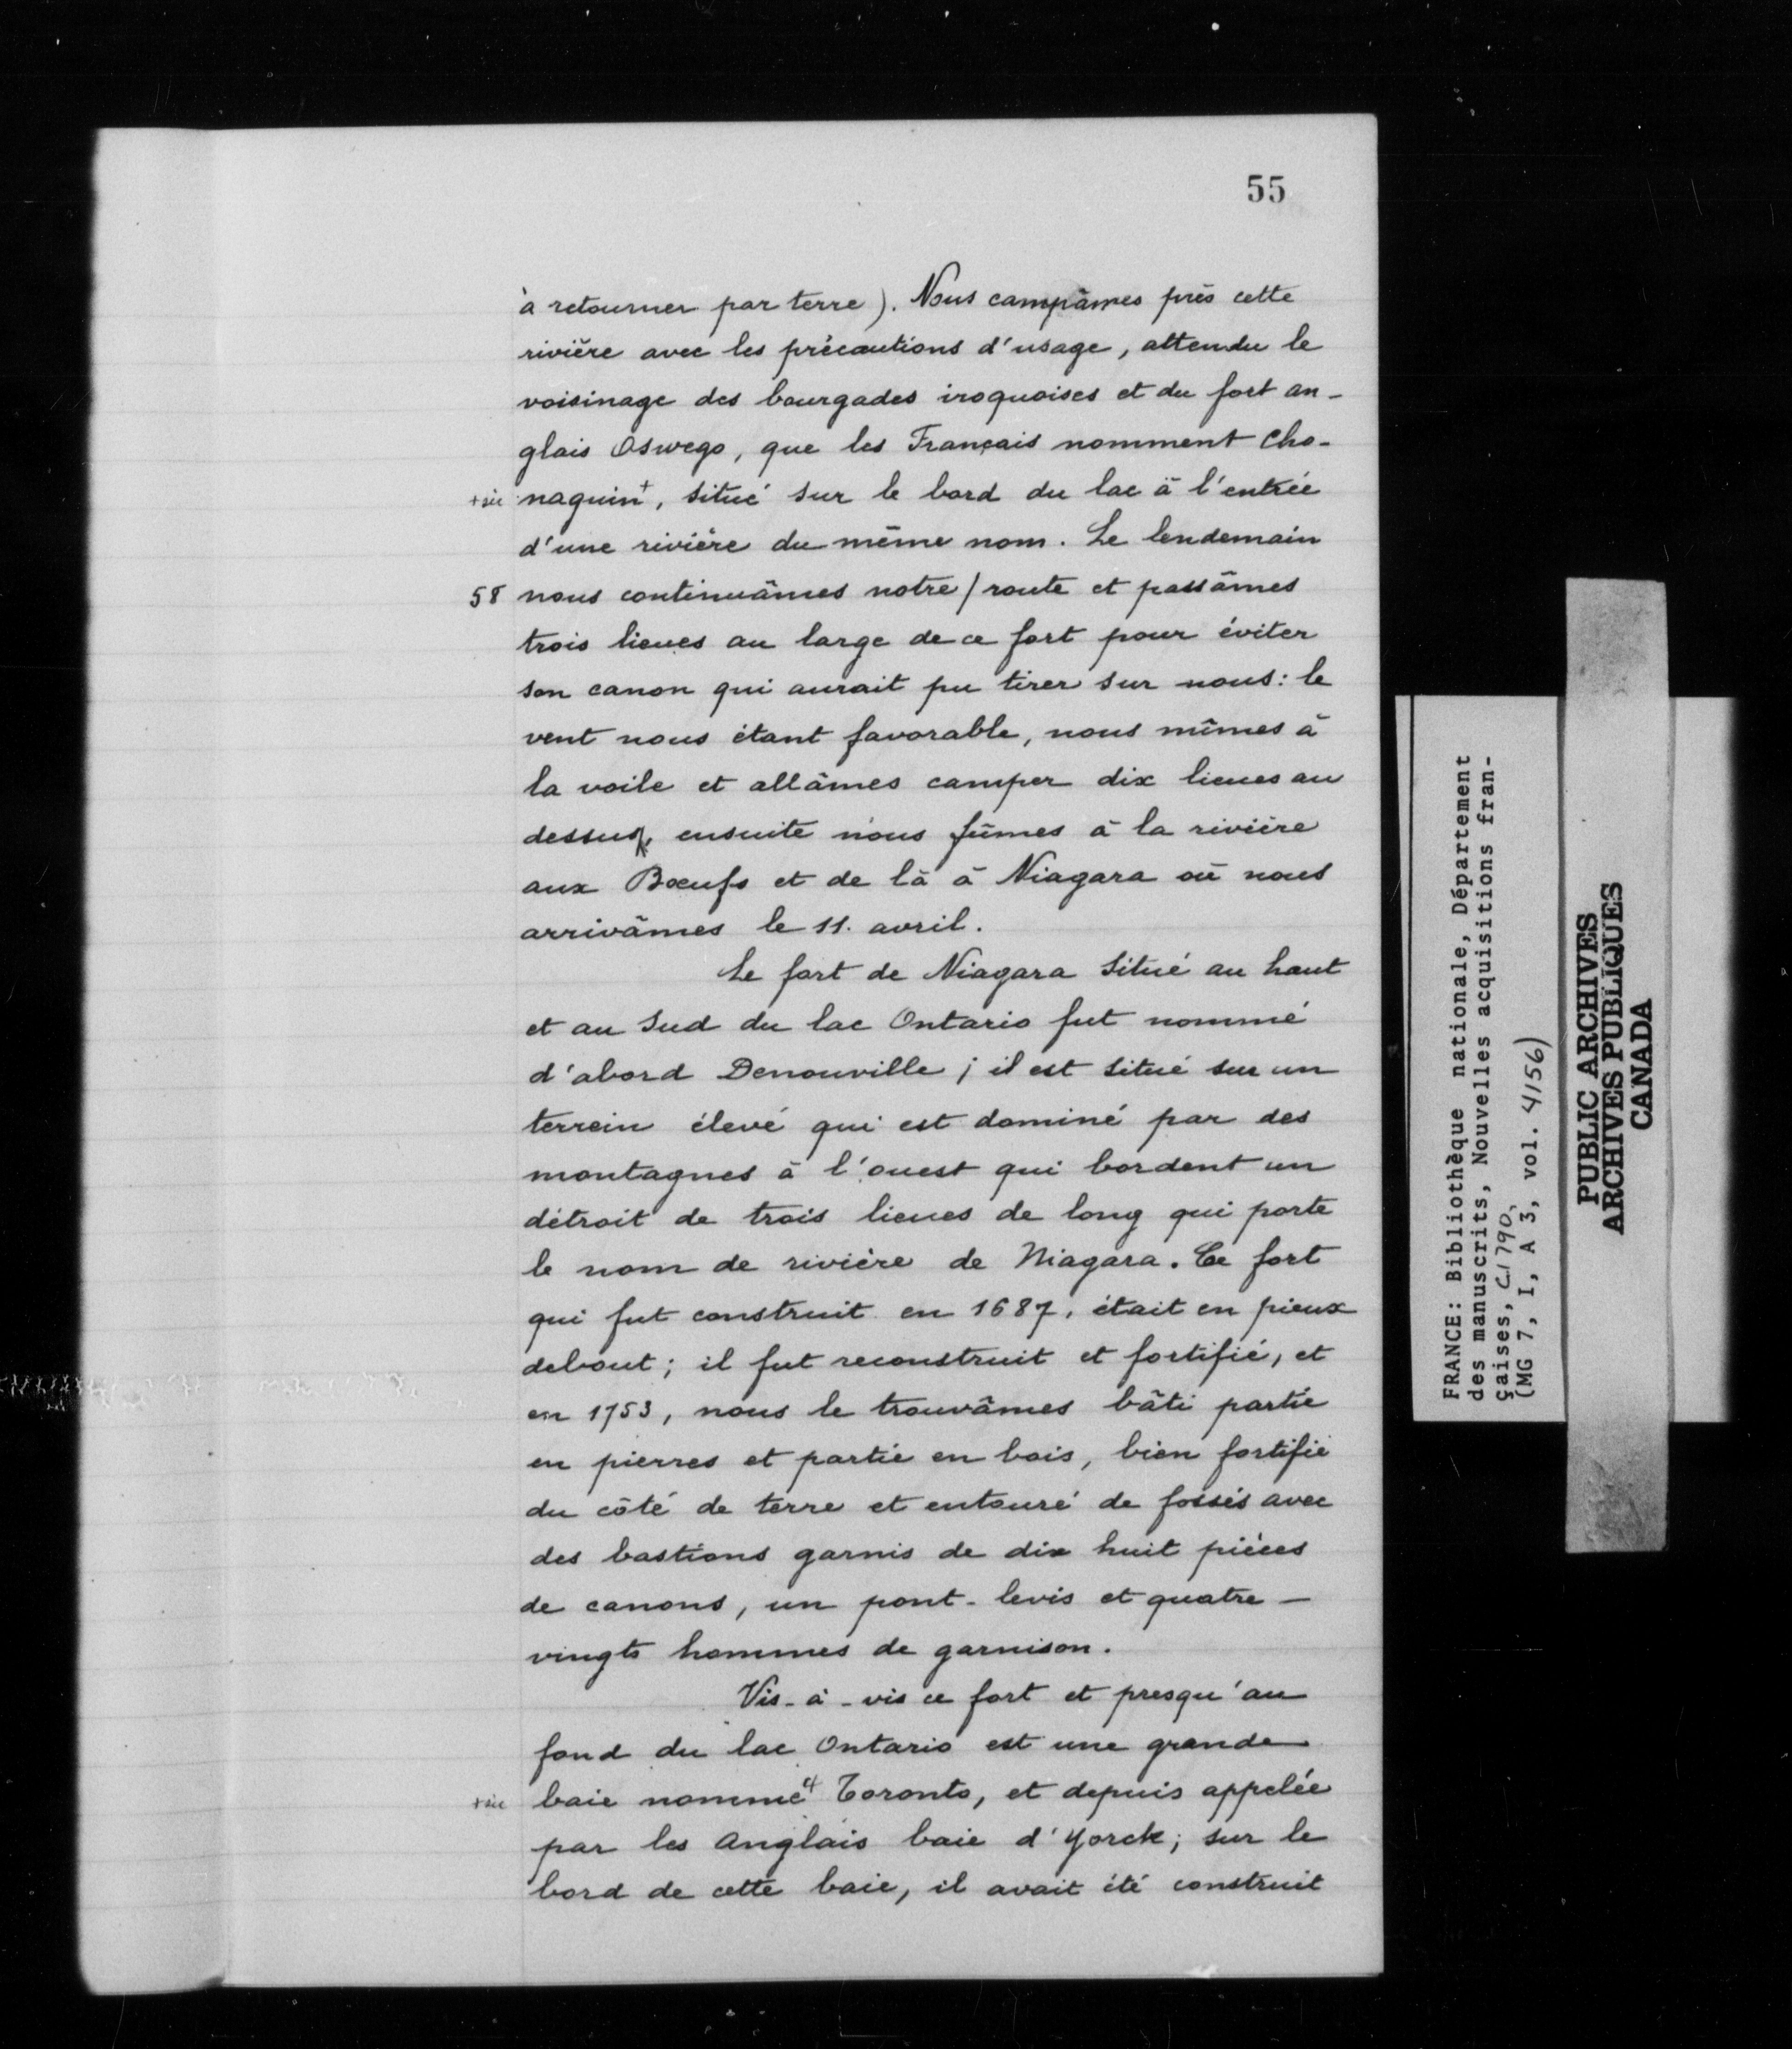 55
à retourner par terre). Nous campâmes près cette
rivière avec les précautions d'usage, attendu le
voisinage des bourgades iroquoises et du fort an-
glais Oswego, que les Français nomment Cho-
+sic naguin+, situé sur le bord du lac à l'entrée
d'une rivière du même nom. Le lendemain
58 nous continuâmes notre / route et passâmes
trois lieues au large de ce fort pour éviter
son canon qui aurait pu tirer sur nous: le
vent nous étant favorable, nous mîmes à
la voile et allâmes camper dix lieues au
dessus, ensuite nous fûmes à la rivière
aux Bœufs et de là à Niagara où nous
arrivâmes le 11. avril.
Le fort de Niagara situé au haut
et au sud du lac Ontario fut nommé
d'abord Denonville; il est situé sur un
terrein élevé qui est dominé par des
montagnes à l'ouest qui bordent un
détroit de trois lieues de long qui porte
le nom de rivière de Niagara. Ce fort
qui fut construit en 1687, était en pieux
debout; il fut reconstruit et fortifié, et
en 1753, nous le trouvâmes bâti partie
en pierres et partie en bois, bien fortifié
du côté de terre et entouré de fossés avec
des bastions garnis de dix huit pièces
de canons, un pont-levis et quatre-
vingts hommes de garnison.
Vis-à-vis ce fort et presqu'au
fond du lac Ontario est une grande
+sic baie nommé+ Toronto, et depuis appelée
par les Anglais baie d'Yorck; sur le
bord de cette baie, il avait été construit
FRANCE: Bibliothèque nationale, Département
des manuscrits, Nouvelles acquisitions fran-
çaises, C.1790,
(MG 7, I, A 3, vol. 4156)
PUBLIC ARCHIVES
ARCHIVES PUBLIQUES
CANADA